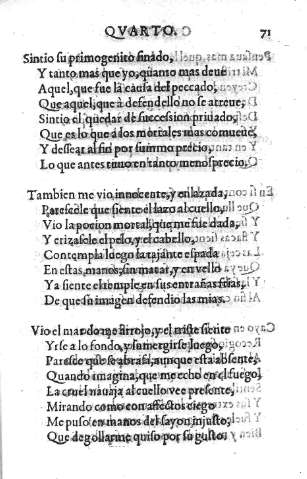 QVARTO. 71
Sintio su primogenito finado,
Y tanto mas que yo, quanto mas deue
Aquel, que fue la causa del peccado,
Que aquel, que a defendello no se atreue,
Sintio el quedar de succession priuado,
Que es lo que a los mortales mas comueue,
Y dessear al fin por summo precio,
Lo que antes tuuo en tanto menosprecio.
Tambien me vio innocente, y enlazada,
Parescele que siente el lazo al cuello,
Vio la pocion mortal, que me fue dada,
Y erizasele el pelo, y el cabello,
Contempla luego la tajante espada
En estas manos, sin matar, y en vello
Ya siente el temple en sus entrañas frias,
De que su imagen defendio las mias.
Vio el mar do me arrojo, y el triste siente
Yrse a lo fondo, y sumergirse luego,
Paresce que se abrasa, aunque esta absente,
Quando imagina, que me echo en el fuego,
La cruel nauaja al cuello vee presente,
Mirando como con affectos ciego
Me puso en manos del sayon injusto,
Que degollarme quiso por su gusto.